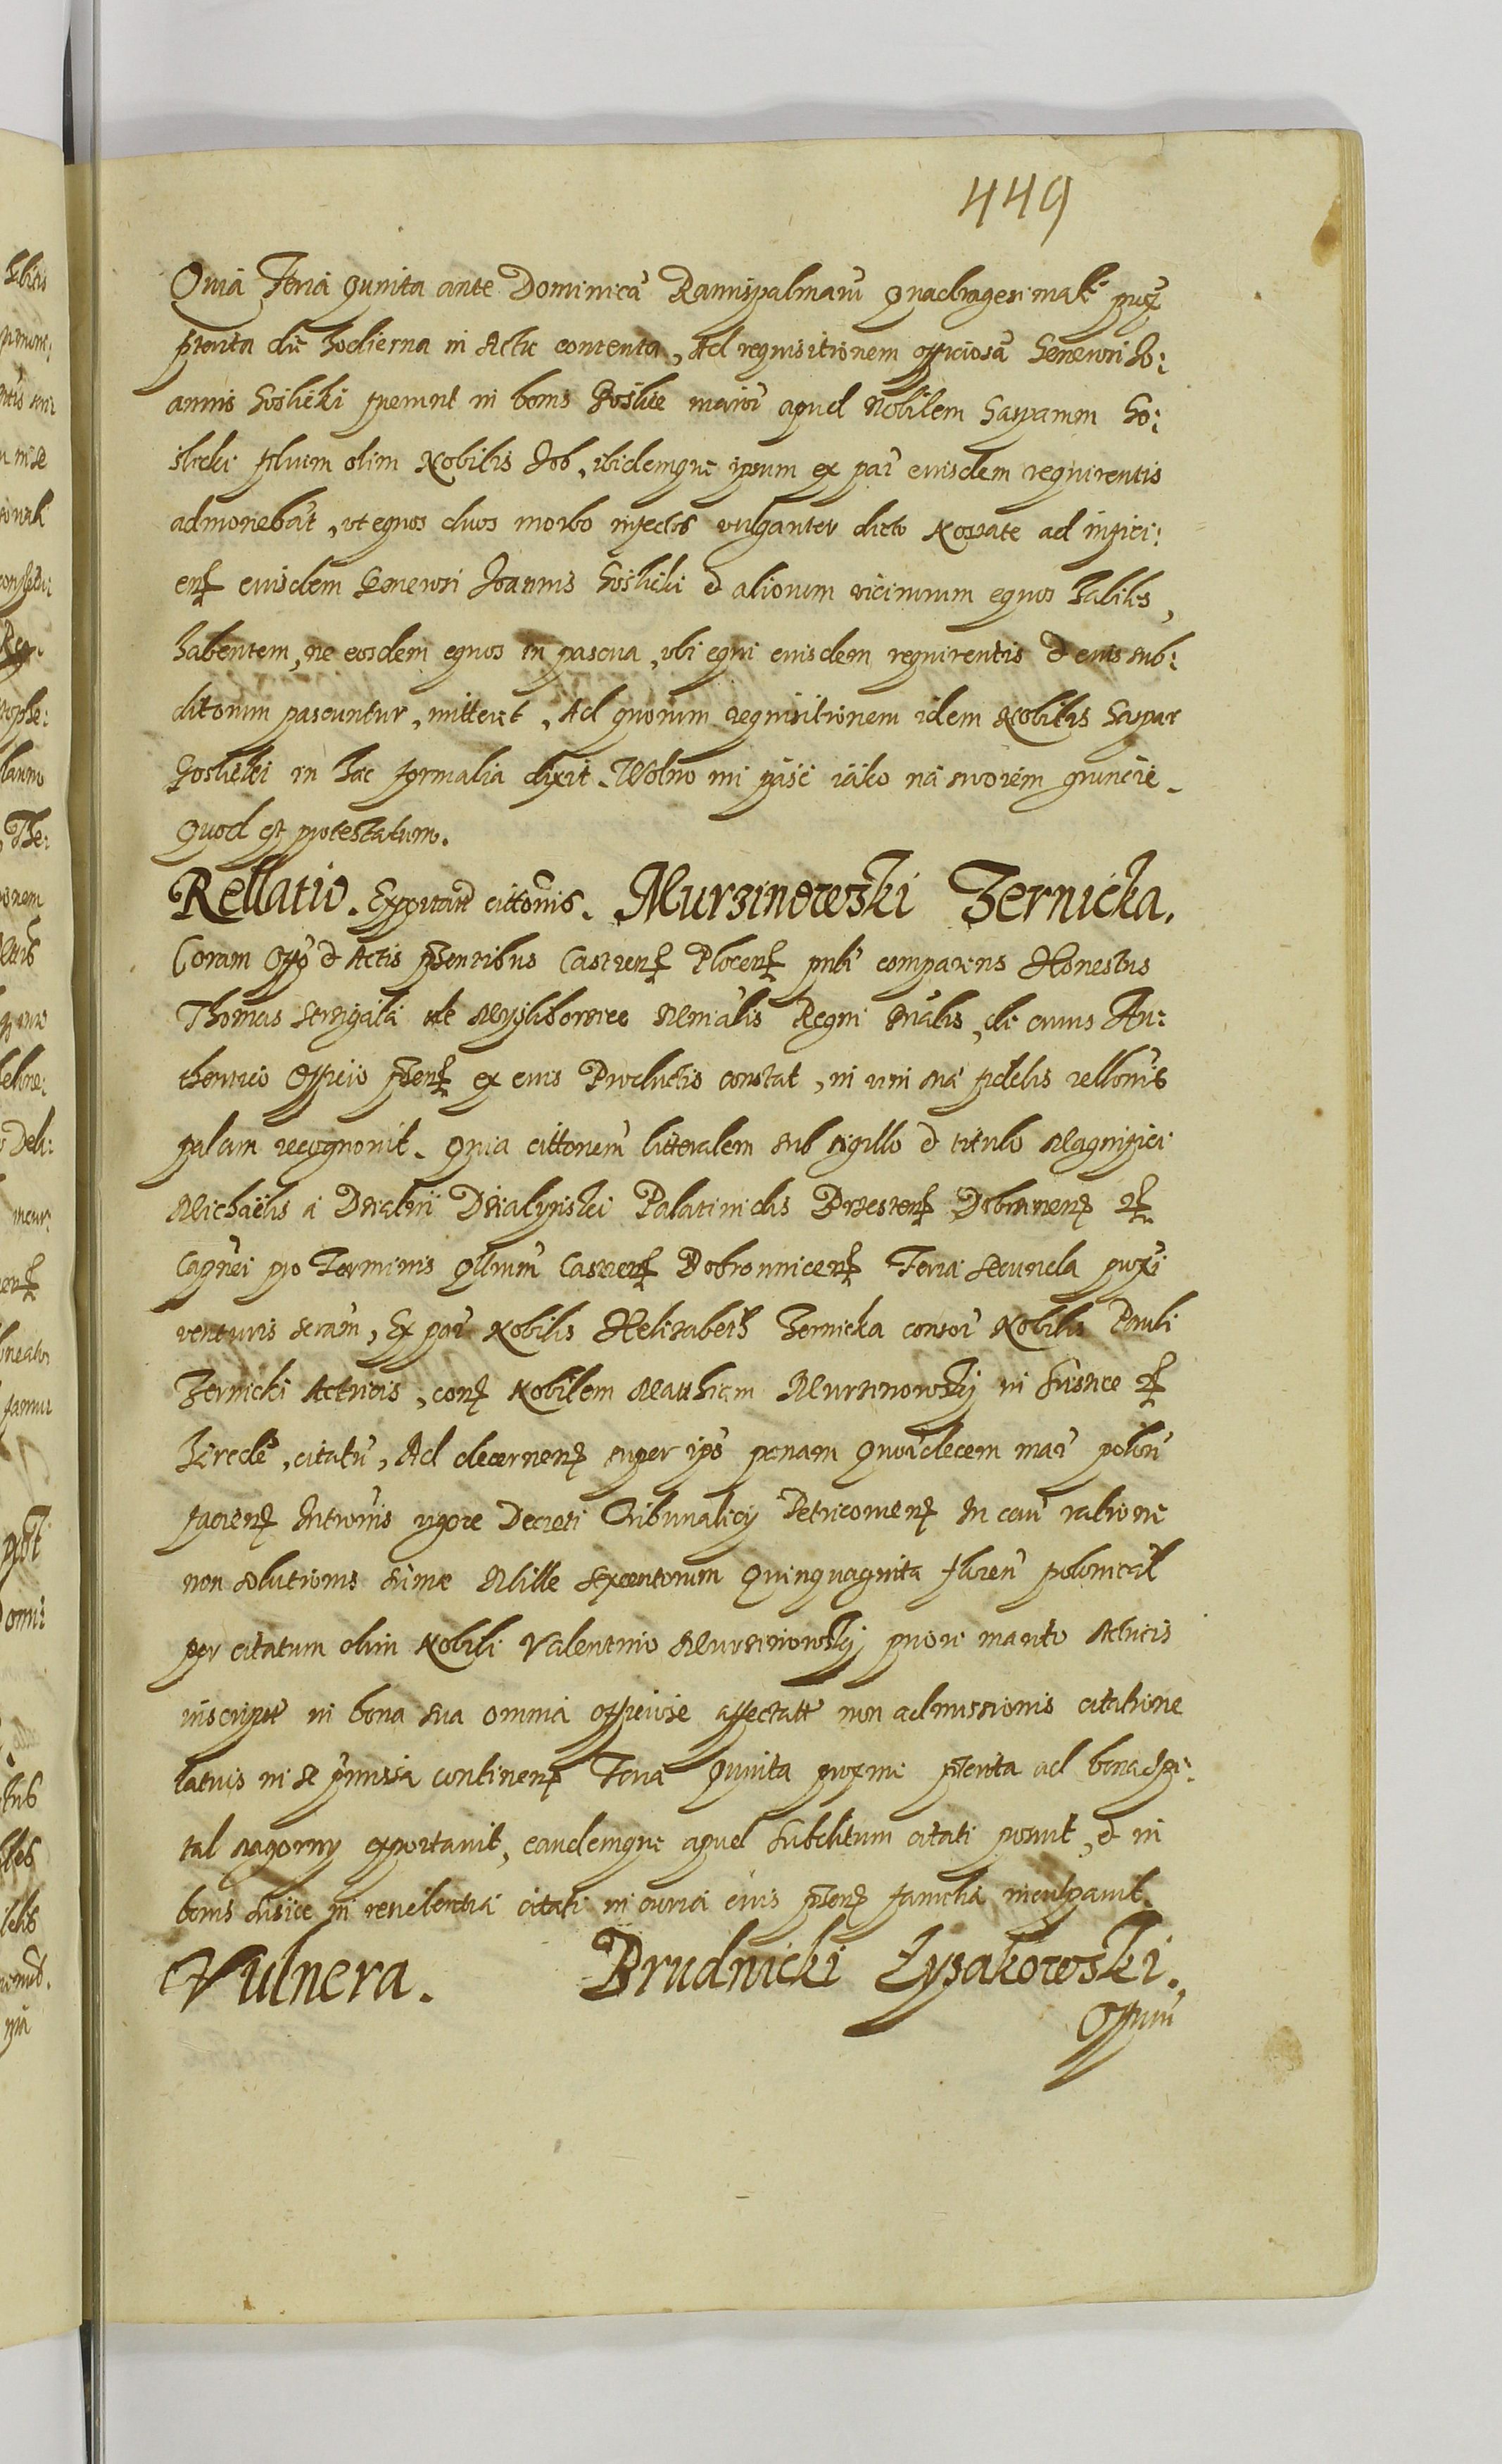 449
Quia Feria quinta ante Dominicã Ramispalmarũ quadragesimalẽ prox
pterita diẽ hodierna in Actu contenta, Ad requisitionem officiosã Generosi Jo:
annis Goslicki fuerunt in bonis Goslice maiori apud Nobilem Gasparum Go:
slicki filium olim Nobilis Job, ibidemque ipsum ex par eiusdem requirentis
admonebat, ut equos duos morbo infectos vulgariter dicto Nossate ad infici:
end eiusdem Generosi Joannis Goslicki et aliorum vicinorum equos habiles,
habentem, ne eosdem equos in pascua, ubi equi eiusdem requirentis et eius sub:
ditorum pascuntur, mitteret, Ad quorum requisitionem idem Nobilis Gaspar
Goslicki in hac formalia dixit. Wolno mi páść iáko ná swoiem gruncie.
Quod est protestatum.
Rellatio. Exportatæ cittõnis. Mursinowski Zernicka.
Coram Offo et Actis pñsentibus Castren Plocen publi comparens Honestus
Thomas de Mysliborzice Mĩnialis Regni Gñalis, de cuius Au:
thentico Officio pñsen ex eius Productis constat, in vim suæ fidelis rellonis
palam recognovit. Quia cittonem litteralem sub sigillo et titulo Magnifici
Michaëlis á Dzialÿn Dzialynski Palatinidis Brzesten Dobrinen etc
Capnei pro Terminis qllum Castren Dobronnicen Feria secunda proxi
venturis , Ex par Nobilis Helizabeth Zernicka consor Nobilis Pauli
Zernicki Actricis, con Nobilem Matthiam Mursinowsky in Susice etc
Hæredẽ, citatũ, Ad decernen super ipo pænam Quatdecem mar polon
facien Intromis vigore Decreti Tribunalicij Petricovien In cau ratione
non solutionis sumæ Mille sexcentorum Quinquaginta floren polonical
per citatum olim Nobili Valentino Mursinowsky priori marito Actricis
inscript in bona sua omnia officiose affectatæ non admissionis citatione
latius in se præmissa continen Feria Quinta proxime pterita ad bona Szpi:
tal nagorny exportavit, eandemque apud Subditum citati posuit, et in
bonis Susice in residentia citati in curia eius pñsen familia inculpavit.
Vulnera. Brudnicki Łysakowski.
Offium